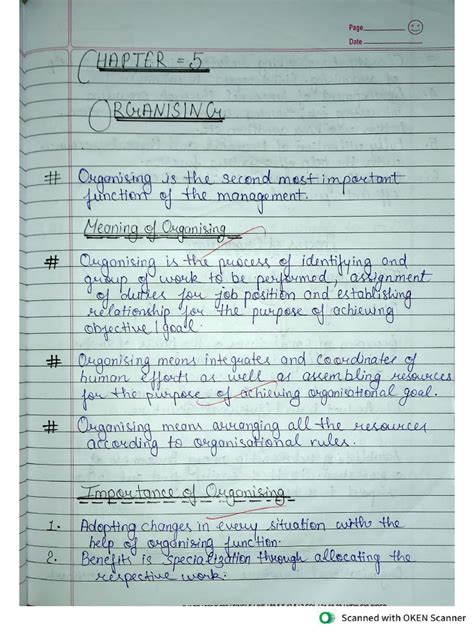 Page
Date
CHAPTER = 5
ORGANISING
# Organising is the second most important
function of the management.
Meaning of Organising
# Organising is the process of identifying and
group of work to be performed, assignment
of duties for job position and establishing
relationship for the purpose of achieving
objective/goal.
# Organising means integrates and coordinates of
human efforts as well as assembling resources
for the purpose of achieving organisational goal.
# Organising means arranging all the resources
according to organisational rules.
Importance of Organising
1. Adopting changes in every situation with the
help of organising function.
2. Benefits is specialization through allocating the
respective work.
Scanned with OKEN Scanner